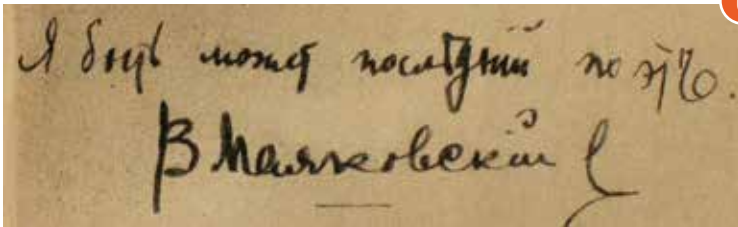 Я быть может послѣдній поэтъ.
В Маяковскій